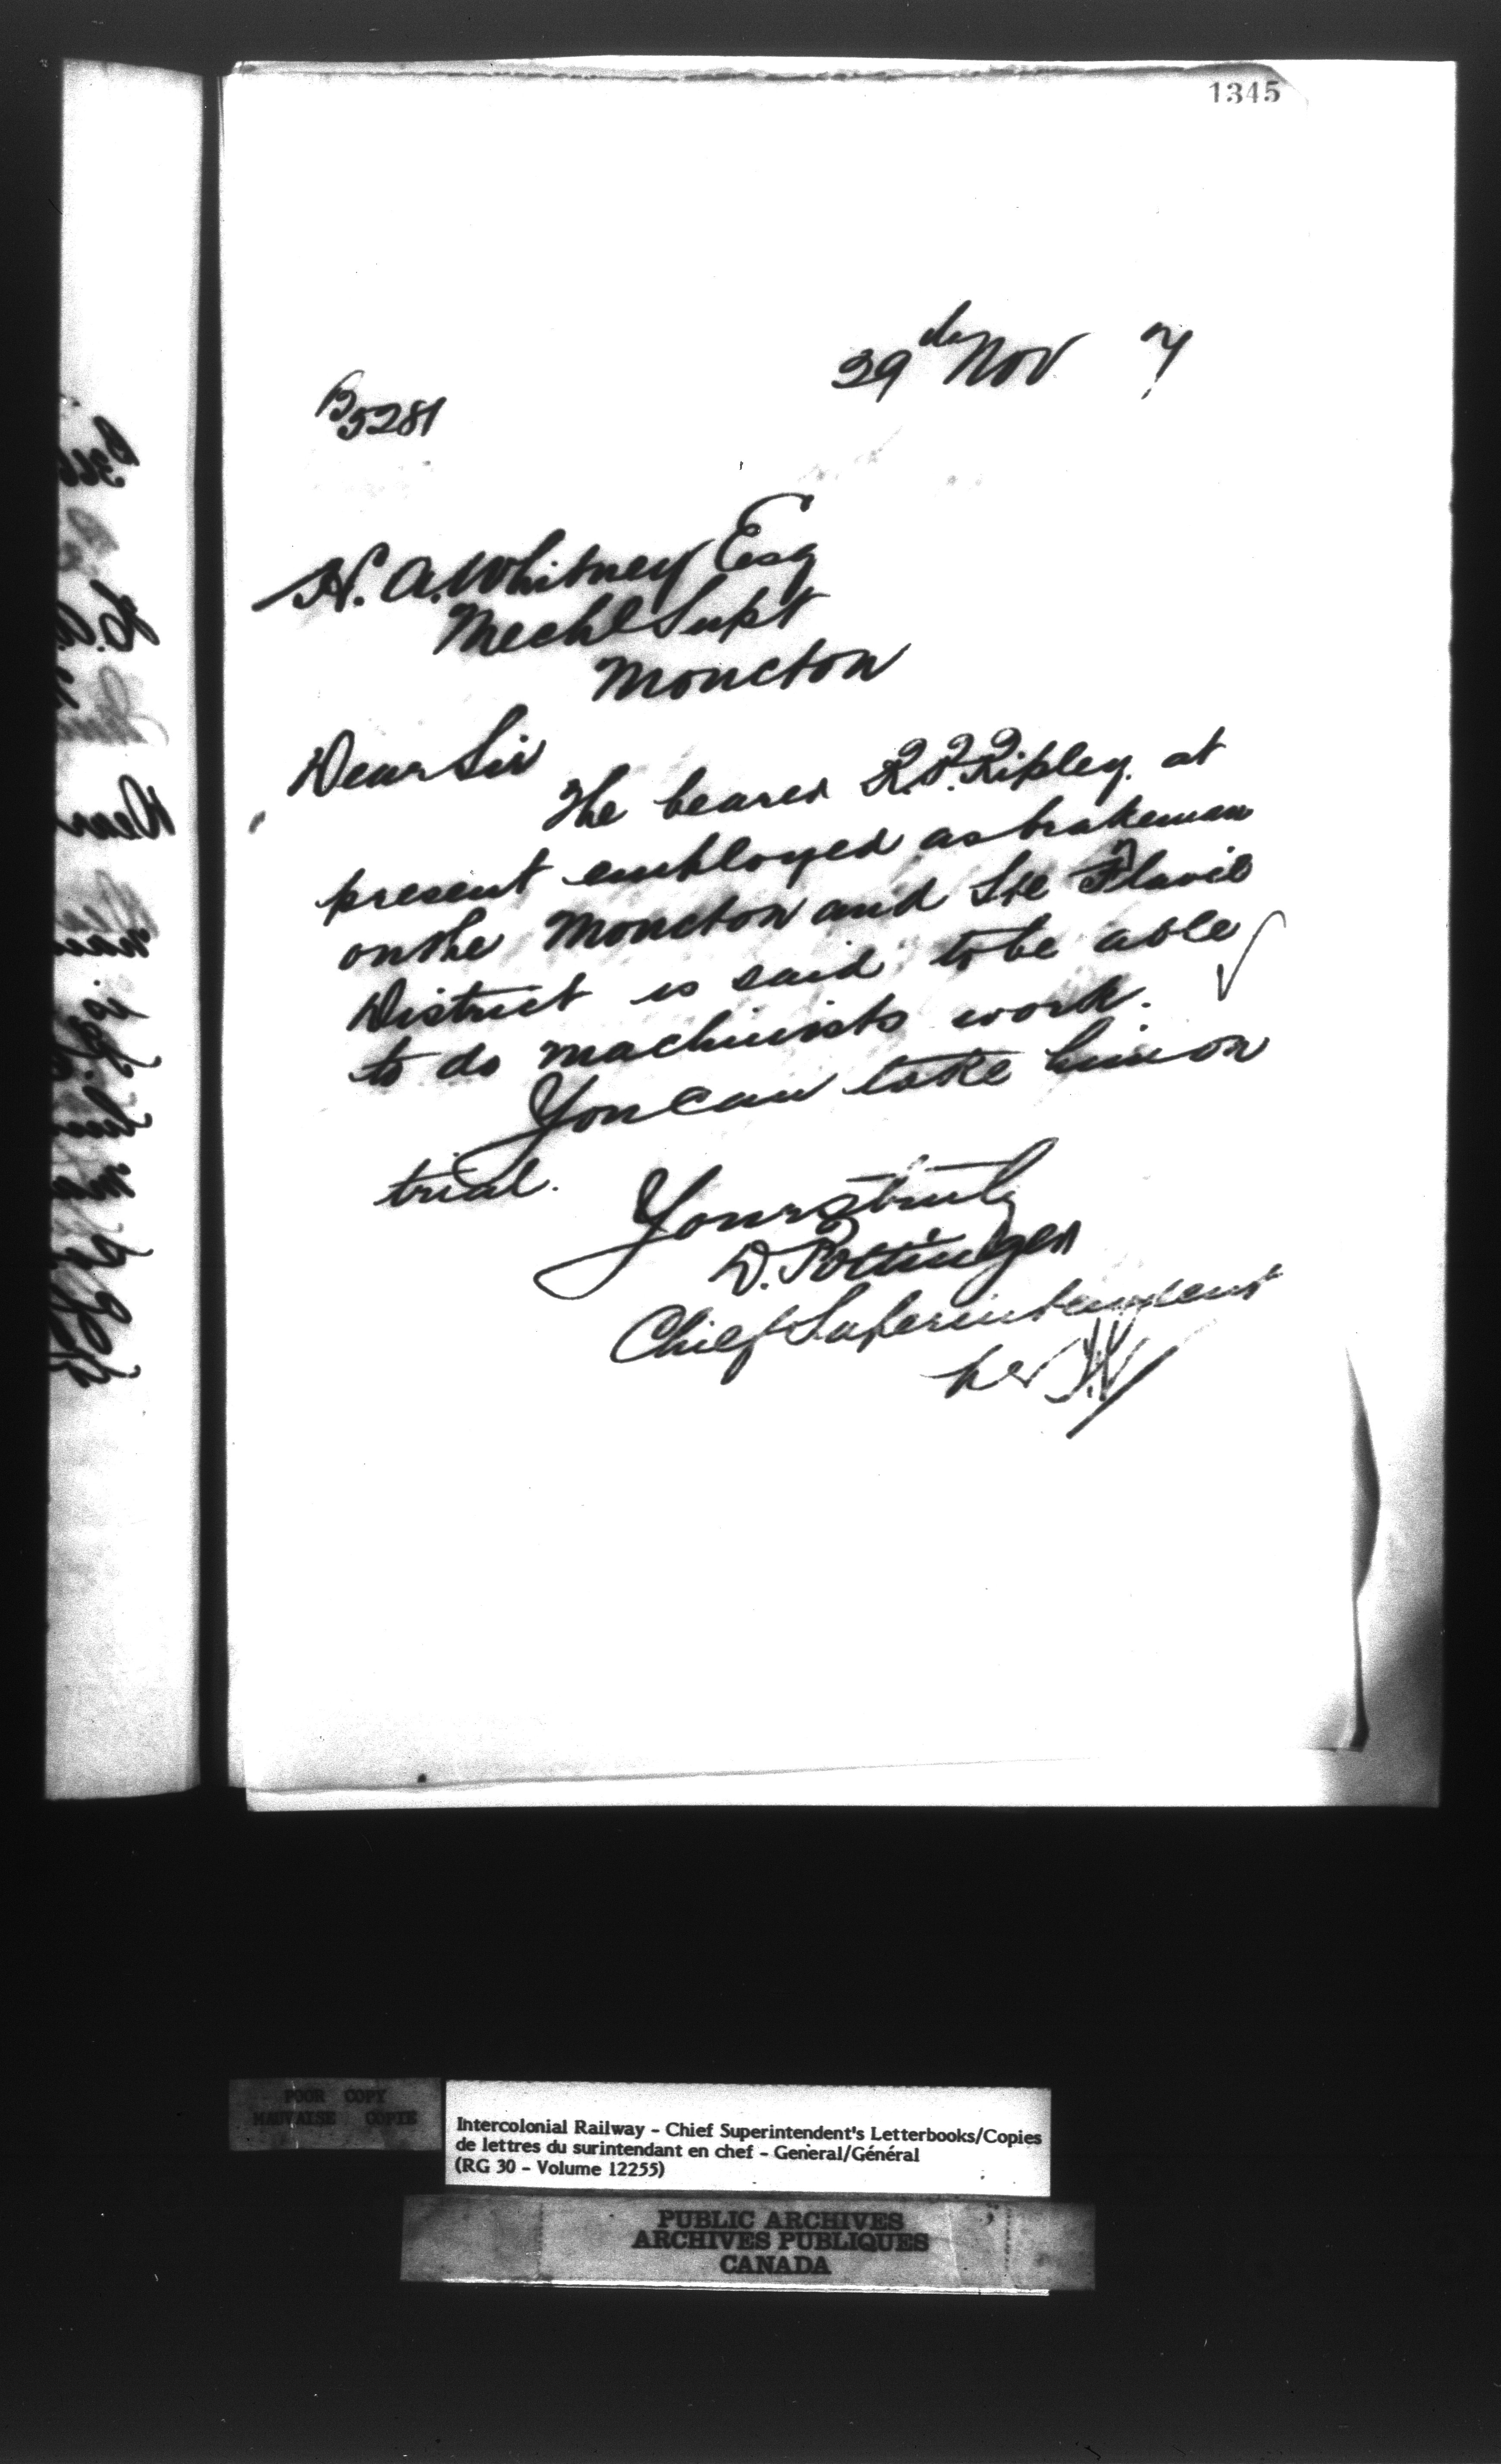 1345
29th Nov 7
B5281
H. A. Whitney Esq
Mechl Supt
Moncton
Dear Sir
The bearer R.P. Ripley. at
present employed as brakeman
on the Moncton and Ste Flavie
District is said to be able
to do machinists work.
You can take him on
trial.
Yours truly
D. Pottinger
Chief Superintendent
per
POOR COPY
MAUVAISE COPIE
Intercolonial Railway - Chief Superintendent's Letterbooks/Copies
de lettres du surintendant en chef - General/Général
(RG 30 - Volume 12255)
PUBLIC ARCHIVES
ARCHIVES PUBLIQUES
CANADA